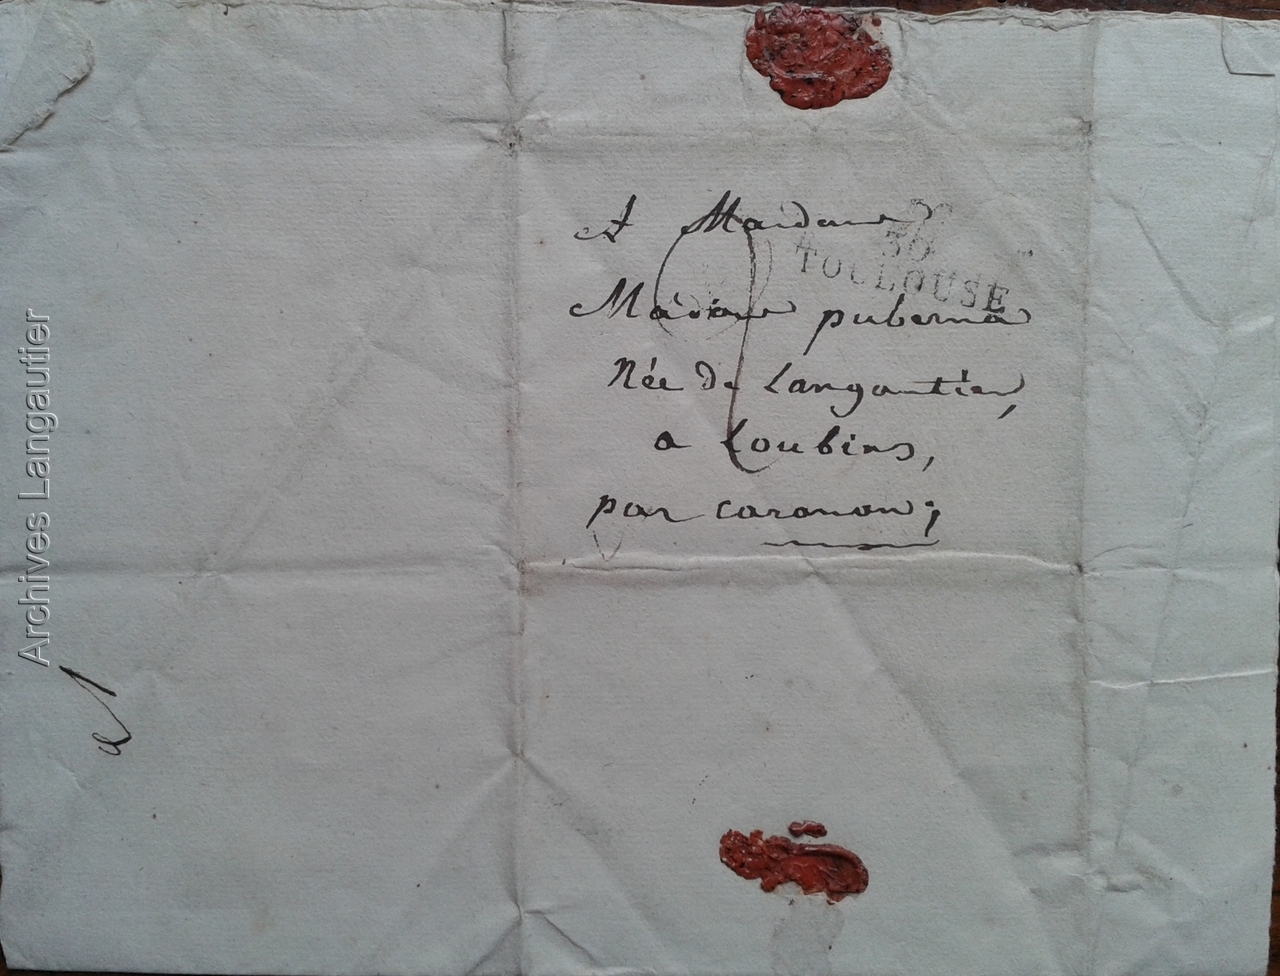 A Madame
30
TOULOUSE
Madame puberna
Née De Langautier,
a Loubens,
par caraman;
Archives Langautier